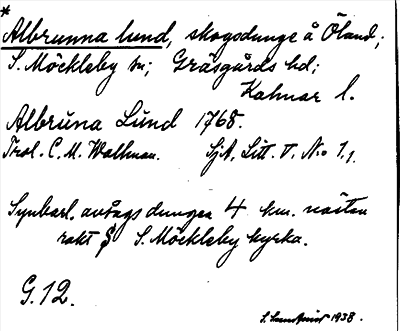 *
Albrunna lund, skogsdunge å Öland;
S. Möckleby sn; Gräsgårds hd;
Kalmar l.
Albruna Lund 1768.
Trol. C. M. Wallman. SjA, Litt. V. No 1.
Synbarl. avsågs dungen 4 km. nästan
rakt S. Möckleby kyrka.
G. 12.
1938.